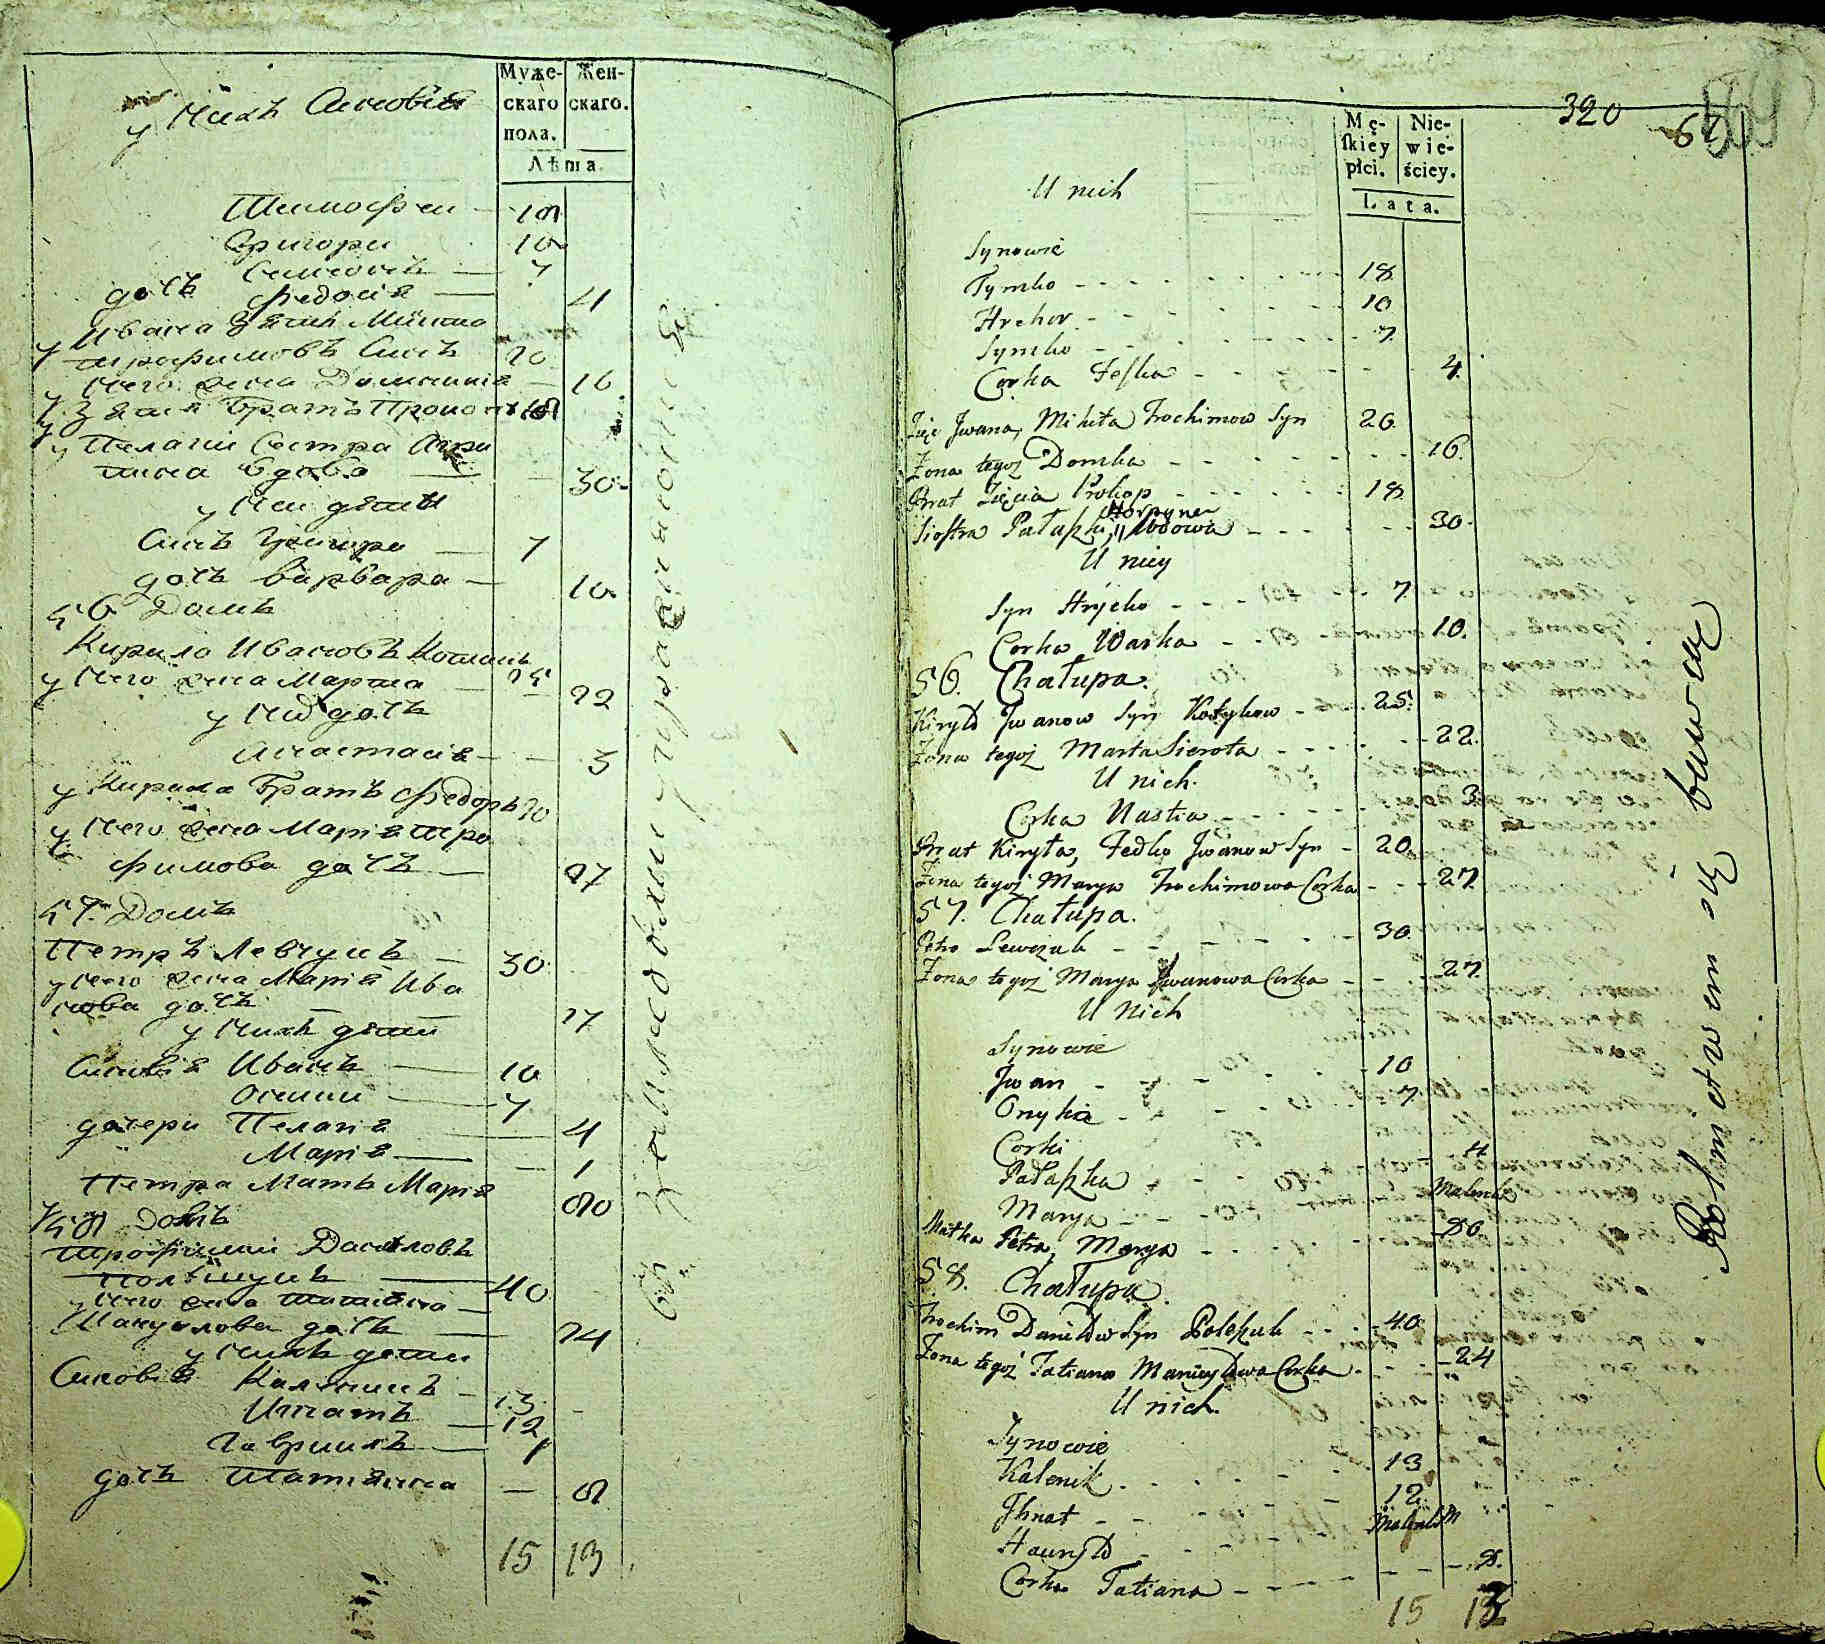 Муже-
скаго
пола.
Жен-
скаго.
Лѣта.
у нихъ Сыновія
Тимофеи 18
Григори 10
Симеонъ 7
дочь Федосія 4
у Ивана Зять Микита
Трофимовъ Сынъ 20
у него жена Домникія 16
у Зятя Братъ Прокопъ 18
у Пелагіи Сестра Агри
пина вдова 30
у неи дѣти
Сынъ Григори 7
дочь Варвара 10
56 Домъ
Кирило Ивановъ 25
у него жена Марта 22
у них дочь
Анастасія 3
у Кирила Братъ Федоръ 20
у него жена Марія Тро
фимова дочь 27
57. Домъ
Петръ Левчукъ 30
у него жена Марія Ива
нова дочь 27
у нихъ дѣти
Синовія Иванъ 10
7
дочери Пелагія 4
Марія 1
Петра Мать Марія 80
58 Домъ
Трофимъ Даниловъ
40
у него жена Татіана
Мануилова дочь 24
у нихъ дети
Синовія Калиникъ 13
Игнатъ 12
Гавриилъ 1
дочь Татіяна 8
15 13
320
Mę-
ſkiey
płci.
Nie-
wie-
ściey.
Lata.
U nich
Synowie
Tymko 18
Hrehor 10
Symko 7
Corka Feſka 4
Zięć Jwana, Mikita Trochimow Syn 20
Zona tegoż Domka 16
Brat Zięcia Prokop 18
Horpyna
Siostra Pałaszki, Wdowa 30
U niey
Syn Hryćko 7
Corka Warka 10
56. Chałupa.
Kiryło Jwanow Syn Kotykow 25
Zona tegoż Marta Sierota 22
U nich.
Corka Nastia 3
Brat Kiryła, Fedko Jwanow Syn 20
Zona tegoż Marya Trochimowa Corka 27
57. Chałupa.
Petro Lewczuk 30
Zona tegoż Marya Jwanowa Corka 27
U Nich
Synowie
Jwan 10
7
Corki
Pałaszka 4
Marya
Matka Petra, Marya 80
58. Chałupa
Trochim Daniłow Syn Poleszuk 40
Zona tegoż Tatiana Manuyłowa Corka 24
U nich
Synowie
Kalenik 13
Jhnat 12
Hawryło
Corka Tatiana 8
15 13
Rolnictwem się bawiący